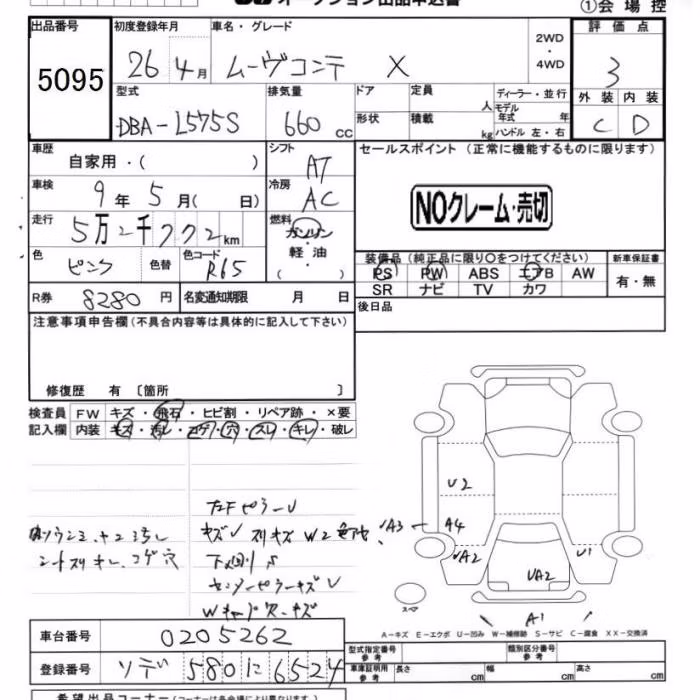 オークション出品申込書
①会場控
出品番号 初度登録年月 車名・グレード 2WD・4WD 評価点
5095 26年4月 ムーヴコンテ X 3
型式 排気量 ドア 定員 人 ディーラー・並行
外装 内装
DBA-L575S 660cc 形状 積載 kg モデル年式 年 ハンドル 左・右
C D
車歴 自家用・( ) シフト AT セールスポイント(正常に機能するものに限ります)
車検 9年5月( 日) 冷房 AC
NOクレーム・売切
走行 5万2千772km 燃料 ガソリン 軽油 ( ・ )
色 ピンク 色替 色コード R65
装備品(純正品に限り○をつけてください) 新車保証書
PS PW ABS エアB AW 有・無
SR ナビ TV カワ
R券 8280円 名変通知期限 月 日 後日品
注意事項申告欄(不具合内容等は具体的に記入して下さい)
修復歴 有 〔箇所 〕
検査員 FW キズ・飛石・ヒビ割・リペア跡・×要
記入欄 内装 キズ・汚レ・コゲ・穴・スレ・キレ・破レ
U2
A3 A4
A2 U1
UA2
A1
スペア
シートスリキレ、コゲ穴
センターピラーキズ
A-キズ E-エクボ U-凹み W-補修跡 S-サビ C-腐食 XX-交換済
車台番号 0205262
型式指定番号 参考 類別区分番号 参考
登録番号 ソデ 580 に 6524
車庫証明用 参考 長さ cm 幅 cm 高さ cm
希望出品コーナー(コーナーは各会場により異なります。)